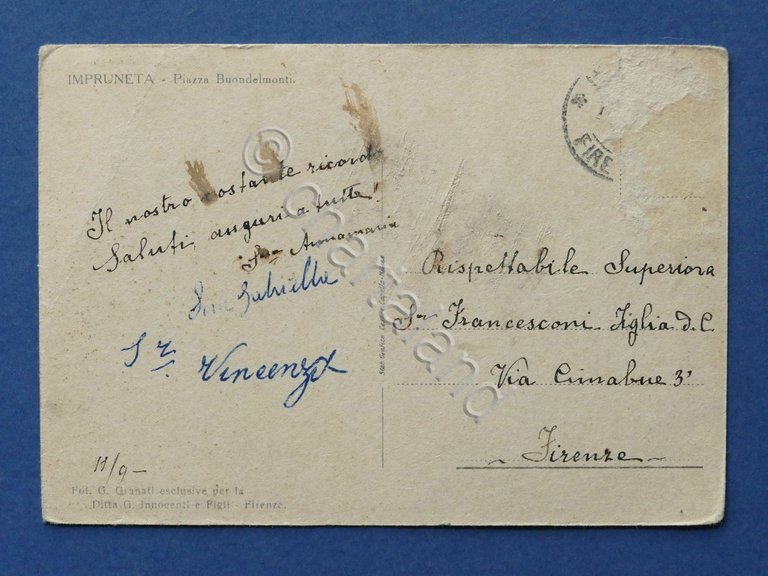 IMPRUNETA - Piazza Buondelmonti.
FIRE
Il nostro costante ricordo
Saluti, auguri a tutte!
Sr Annamaria
Suor Gabriella
Sr. Vincenza
11/9-
Fot. G. Granati esclusive per la
Ditta G. Innocenti e Figli - Firenze.
Rispettabile Superiora
Sr Francesconi Figlia d. C.
Via Cimabue 3'
Firenze
© Cartaland